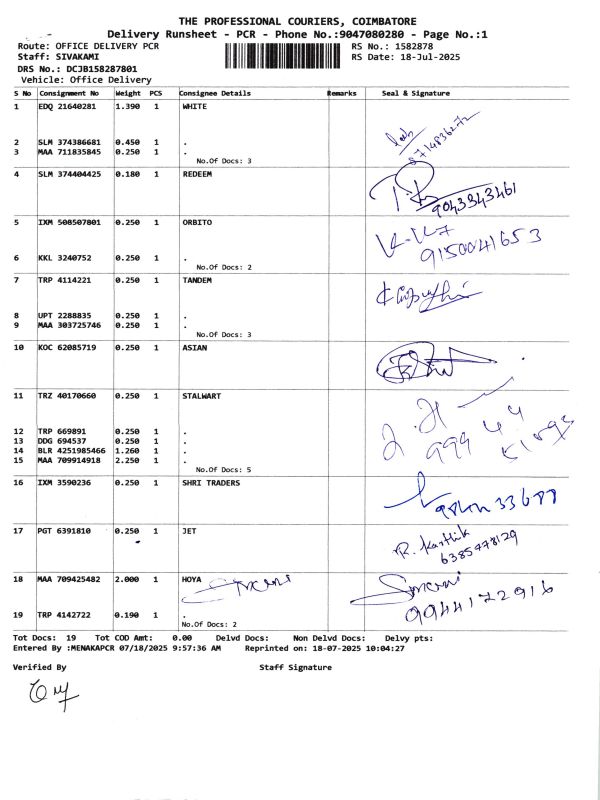 THE PROFESSIONAL COURIERS, COIMBATORE
Delivery Runsheet - PCR - Phone No.:9047080280 - Page No.:1
Route: OFFICE DELIVERY PCR RS No.: 1582878
Staff: SIVAKAMI RS Date: 18-Jul-2025
DRS No.: DCJB158287801
Vehicle: Office Delivery
S No Consignment No Weight PCS Consignee Details Remarks Seal & Signature
1 EDQ 21640281 1.390 1 WHITE
2 SLM 374386681 0.450 1 .
3 MAA 711835845 0.250 1 .
No.Of Docs: 3
4 SLM 374404425 0.180 1 REDEEM
9043343461
5 IXM 508507801 0.250 1 ORBITO
9150041653
6 KKL 3240752 0.250 1 .
No.Of Docs: 2
7 TRP 4114221 0.250 1 TANDEM
8 UPT 2288835 0.250 1 .
9 MAA 303725746 0.250 1 .
No.Of Docs: 3
10 KOC 62085719 0.250 1 ASIAN
11 TRZ 40170660 0.250 1 STALWART
12 TRP 669891 0.250 1 .
13 DDG 694537 0.250 1 .
14 BLR 4251985466 1.260 1 .
15 MAA 709914918 2.250 1 .
No.Of Docs: 5
16 IXM 3590236 0.250 1 SHRI TRADERS
17 PGT 6391810 0.250 1 JET
R. Karthik
6385478129
18 MAA 709425482 2.000 1 HOYA
9944172916
19 TRP 4142722 0.190 1 .
No.Of Docs: 2
Tot Docs: 19 Tot COD Amt: 0.00 Delvd Docs: Non Delvd Docs: Delvy pts:
Entered By :MENAKAPCR 07/18/2025 9:57:36 AM Reprinted on: 18-07-2025 10:04:27
Verified By Staff Signature